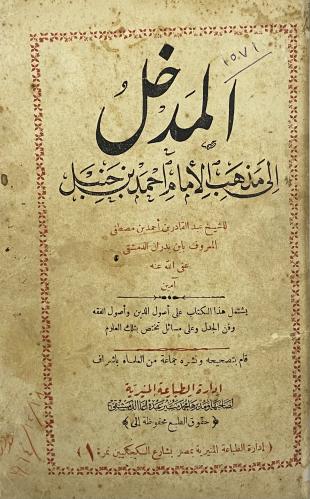 ١٥٧١
المدخل
إلى مذهب الإمام أحمد بن حنبل
للشيخ عبد القادر بن أحمد بن مصطفى
المعروف بابن بدران الدمشقى
عفى الله عنه
آمين
يشتمل هذا الكتاب على أصول الدين وأصول الفقه
وفن الجدل وعلى مسائل تختص بتلك العلوم
قام بتصحيحه ونشره جماعة من العلماء باشراف
إدارة الطباعة المنيرية
لصاحبها ومديرها محمد منير عبده أغا الدمشقى
﴿ حقوق الطبع محفوظة إلى ﴾
إدارة الطباعة المنيرية بمصر بشارع الكحكيين نمرة ١